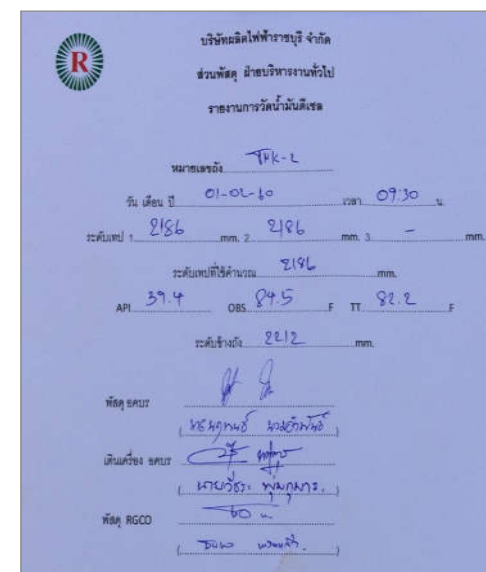 R
บริษัทผลิตไฟฟ้าราชบุรี จำกัด
ส่วนพัสดุ ฝ่ายบริหารงานทั่วไป
รายงานการวัดน้ำมันดีเซล
หมายเลขถัง TNK-2
วัน เดือน ปี 01-02-60 เวลา 09:30 น.
ระดับเทป 1 2186 mm. 2 2186 mm. 3 - mm.
ระดับเทปที่ใช้คำนวณ 2186 mm.
API 39.4 OBS 84.5 F TT 82.2 F
ระดับข้างถัง 2212 mm.
พัสดุ
เดินเครื่อง
( นายวีระ พุ่มกุมาร )
พัสดุ RGCO